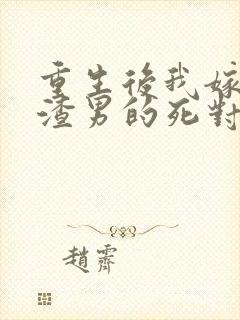 重生後我嫁
渣男的死對
趙霽